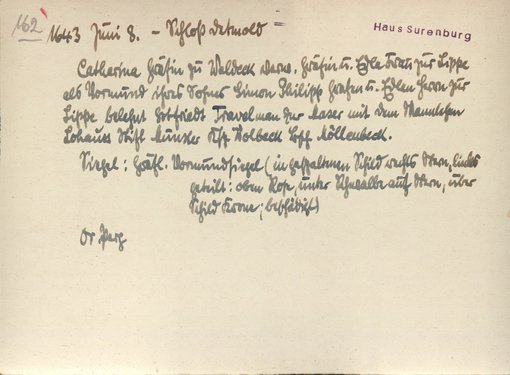 162
1643 Juni 8. - Schloß Detmold
Haus Surenburg
Catharina Gräfin zu Waldeck verw. Gräfin u. Edle Frau zur Lippe
als Vormund ihres Sohnes Simon Philipp Grafen u. Edlen Herrn zur
Lippe belehnt Gottfriedt Travelman zur Maser mit dem Mannlehen
Lohaus Stift Münster Ksp. Wolbeck Bsch. Möllenbeck.
Siegel: Gräfl. Vormundsiegel (in gespaltenem Schild rechts Stern, links
geteilt: oben Rose, unten Schwalbe auf Stern, über
Schild Krone; beschädigt)
Or Perg